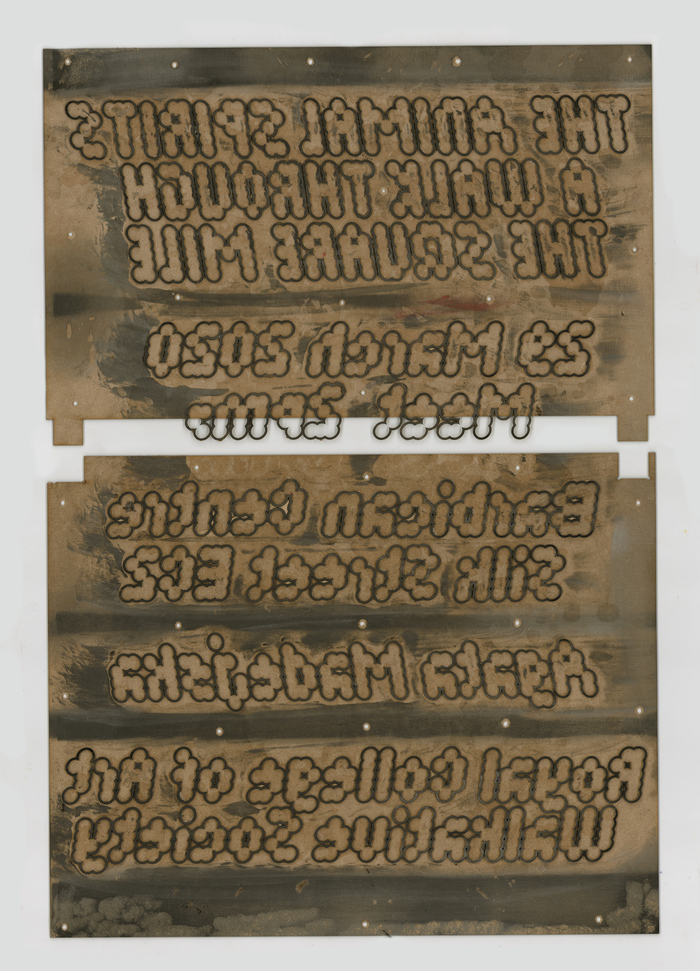 THE ANIMAL SPIRITS
A WALK THROUGH
THE SQUARE MILE
29 March 2020
Meet 2pm,
Barbican Centre
Silk Street EC2
Agata Madejska
Royal College of Art
Walkative Society